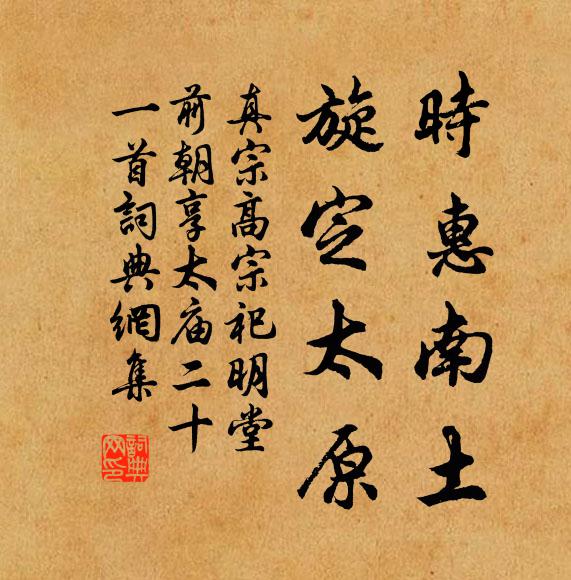 時惠南土
旋定太原
真宗高宗祀明堂
前朝享太庙二十
一首詞典網集
詞典
网印